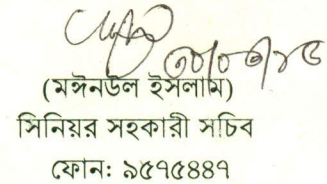 (মঈনউল ইসলাম)
সিনিয়র সহকারী সচিব
ফোন: ৯৫৭৫৪৪৭